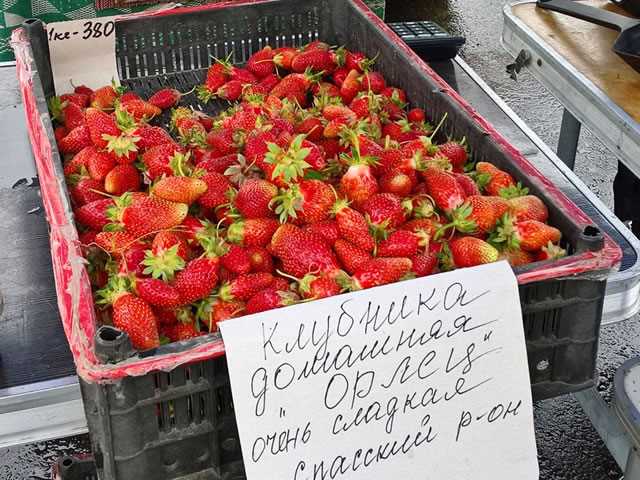 1кг - 380
Клубника
домашняя
"ОРЛЕЦ"
очень сладкая
Спасский р-он